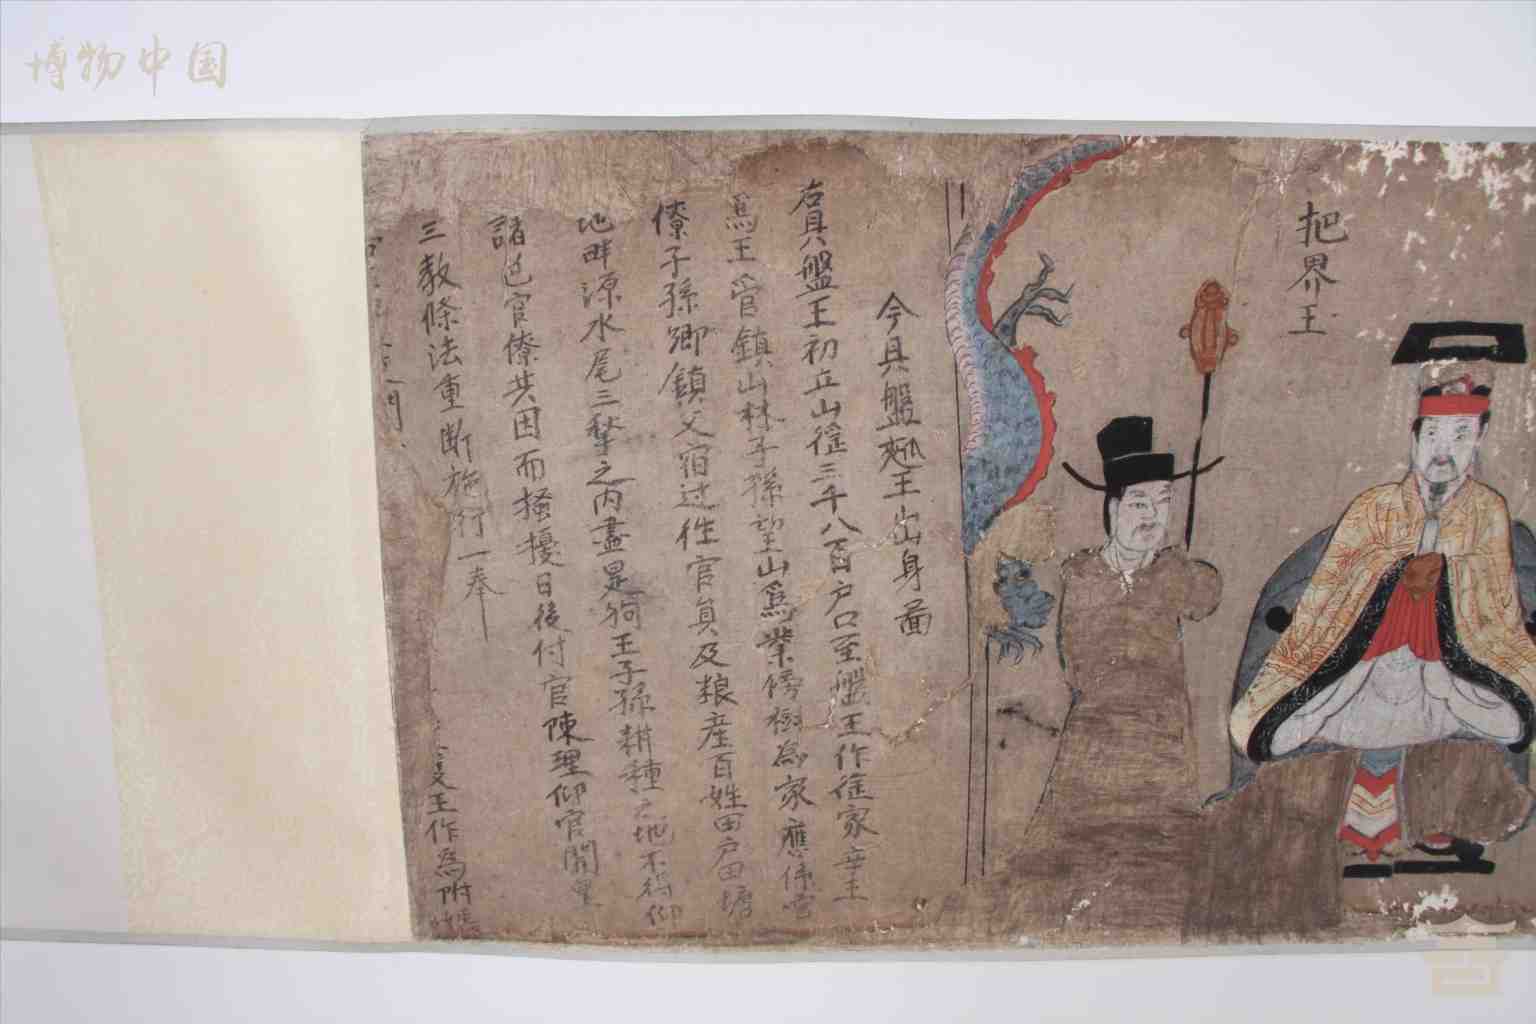 博物中国
把界王
今具盤瓠王出身圖
右具盤王初立山徭三千八百户口至盤王作徭家
爲王管鎮山林子孫望山爲業傍樹為家應係
僚子孫卿鎮父宿过徃官負及粮産百姓田户田塘
地畔源水尾三犂之内盡是狗王子孫耕種之地不得仰
諸邑官僚共因而搔擾日後付官陳理仰官
三教條法重断施行一奉
王作為附